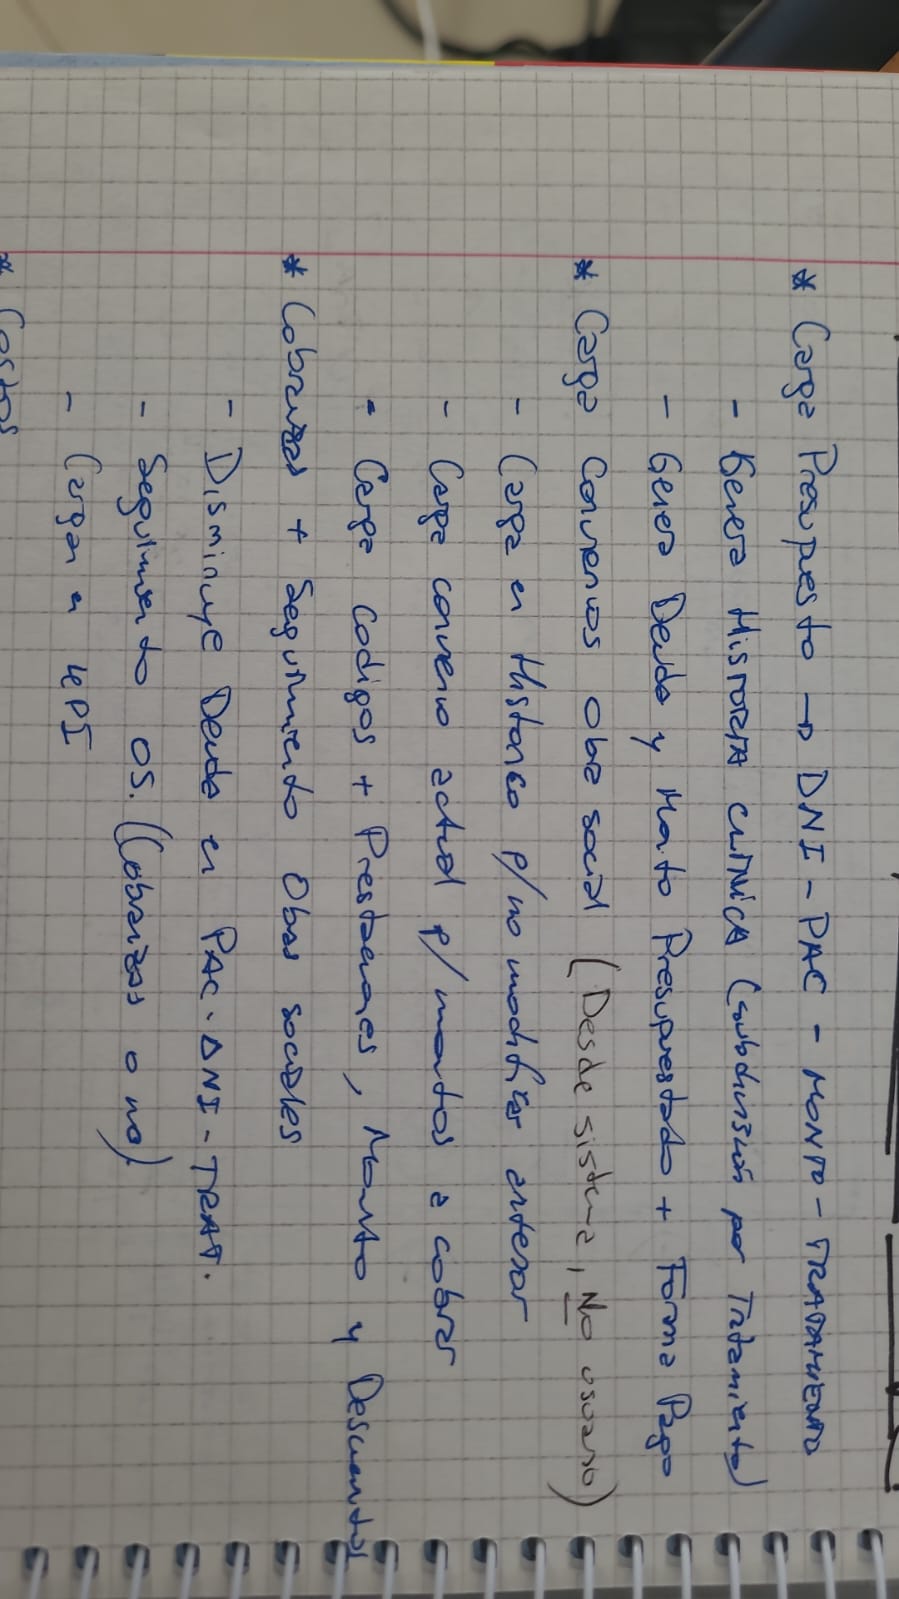 * Carga Presupuesto → DNI - PAC - MONTO - TRATAMIENTO
- Genera HISTORIA CLINICA (subdivisión por Tratamiento)
- Genera Deuda y Monto Presupuestado + Forma Pago
* Carga Convenios Obra social (Desde sistema, No usuario)
- Carga en Historico p/no modificar anterior
- Carga convenio actual p/ montos a cobrar
- Carga codigos + Prestaciones, Monto y Descuentos
* Cobranzas + Seguimiento Obras sociales
- Disminuye Deuda en PAC-DNI-TRAT.
- Seguimiento OS. (Cobranzas o no)
- Cargar en KPI
* Costos